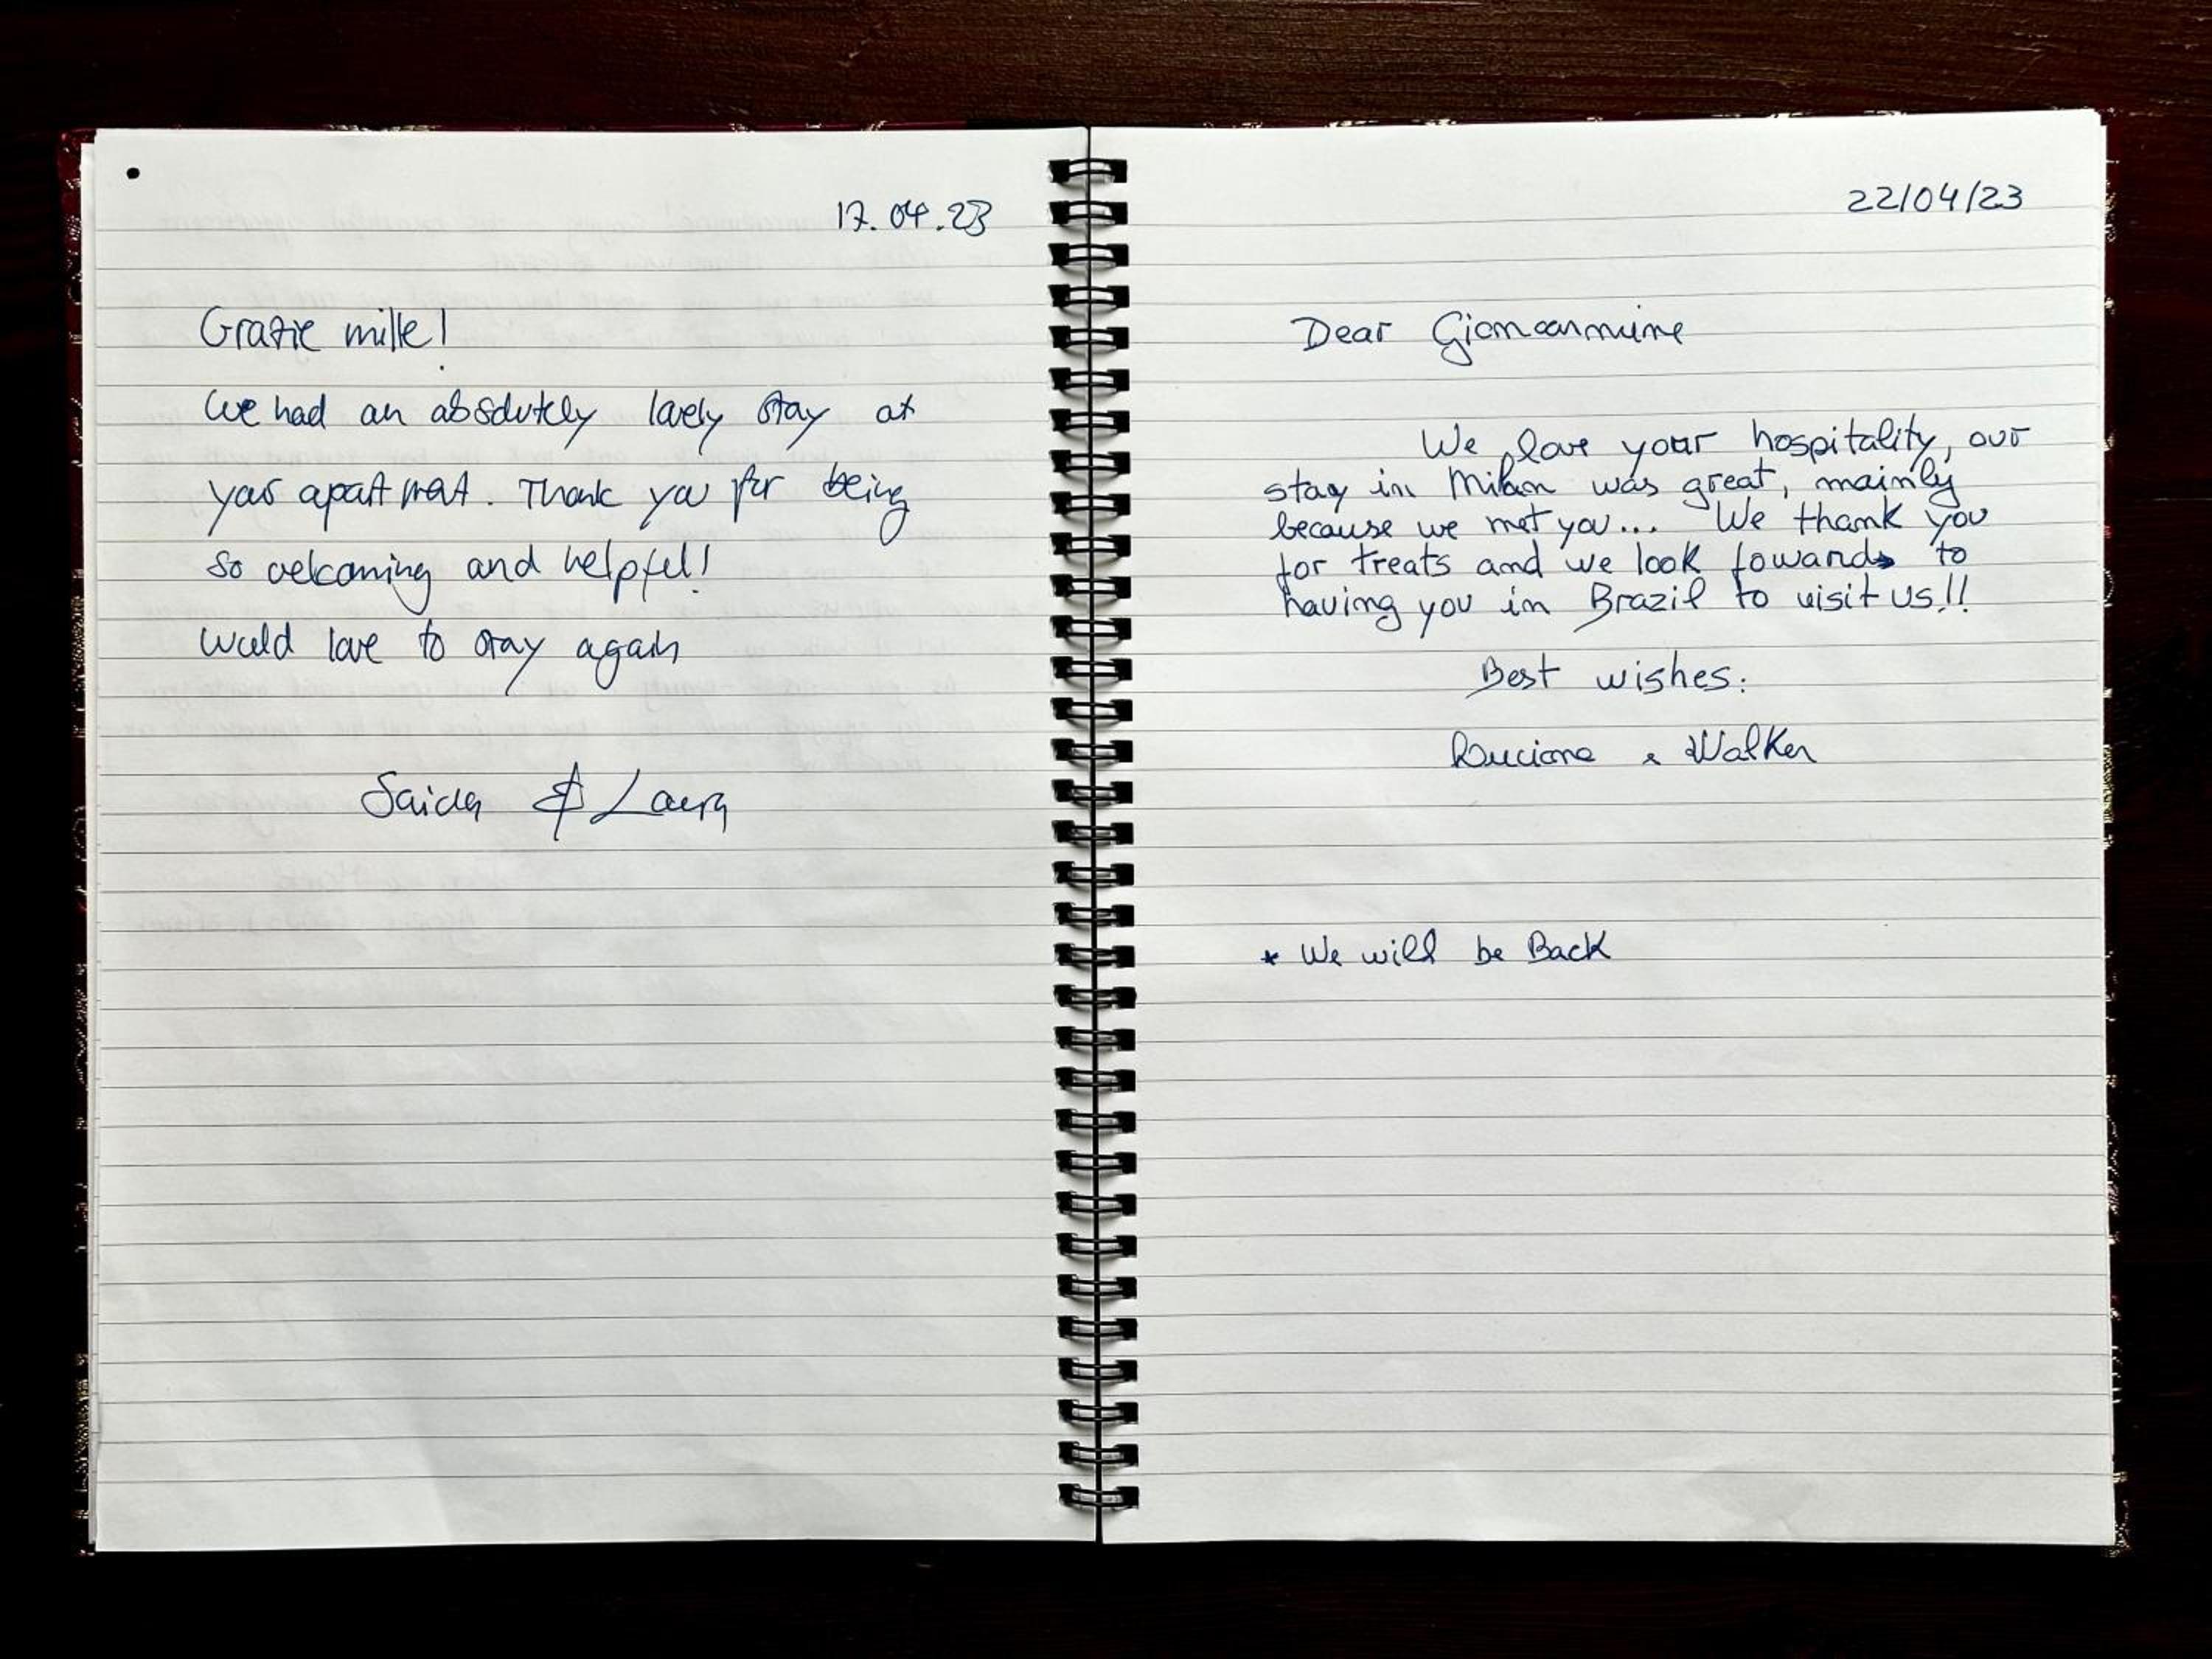 17.04.23
Grazie mille!
We had an absolutely lovely stay at
your apartment. Thank you for being
so welcoming and helpful!
Would love to stay again
Saida & Laura
22/04/23
Dear
We love your hospitality, our
stay in Milan was great, mainly
because we met you... We thank you
for treats and we look fowards to
having you in Brazil to visit us!!
Best wishes:
Luciana & Walker
* We will be Back